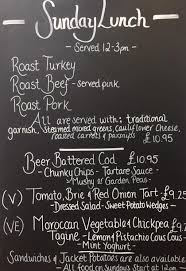 Sunday Lunch
- Served 12-3pm -
Roast Turkey
Roast Beef - served pink
Roast Pork
All are served with: traditional
garnish, steamed mixed greens, cauliflower cheese,
roasted carrots & parsnips £10.95
Beer Battered Cod £10.95
- Chunky Chips - Tartare Sauce -
- Mushy or Garden Peas -
(V) Tomato, Brie & Red Onion Tart £9.25
- Dressed Salad - Sweet Potato Wedges -
(VE) Moroccan Vegetable & Chickpea £9.
Tagine - Lemon & Pistachio Cous Cous -
- Mint Yoghurt -
Sandwiches & Jacket Potatoes are also available
- All food on Sundays Start at 12